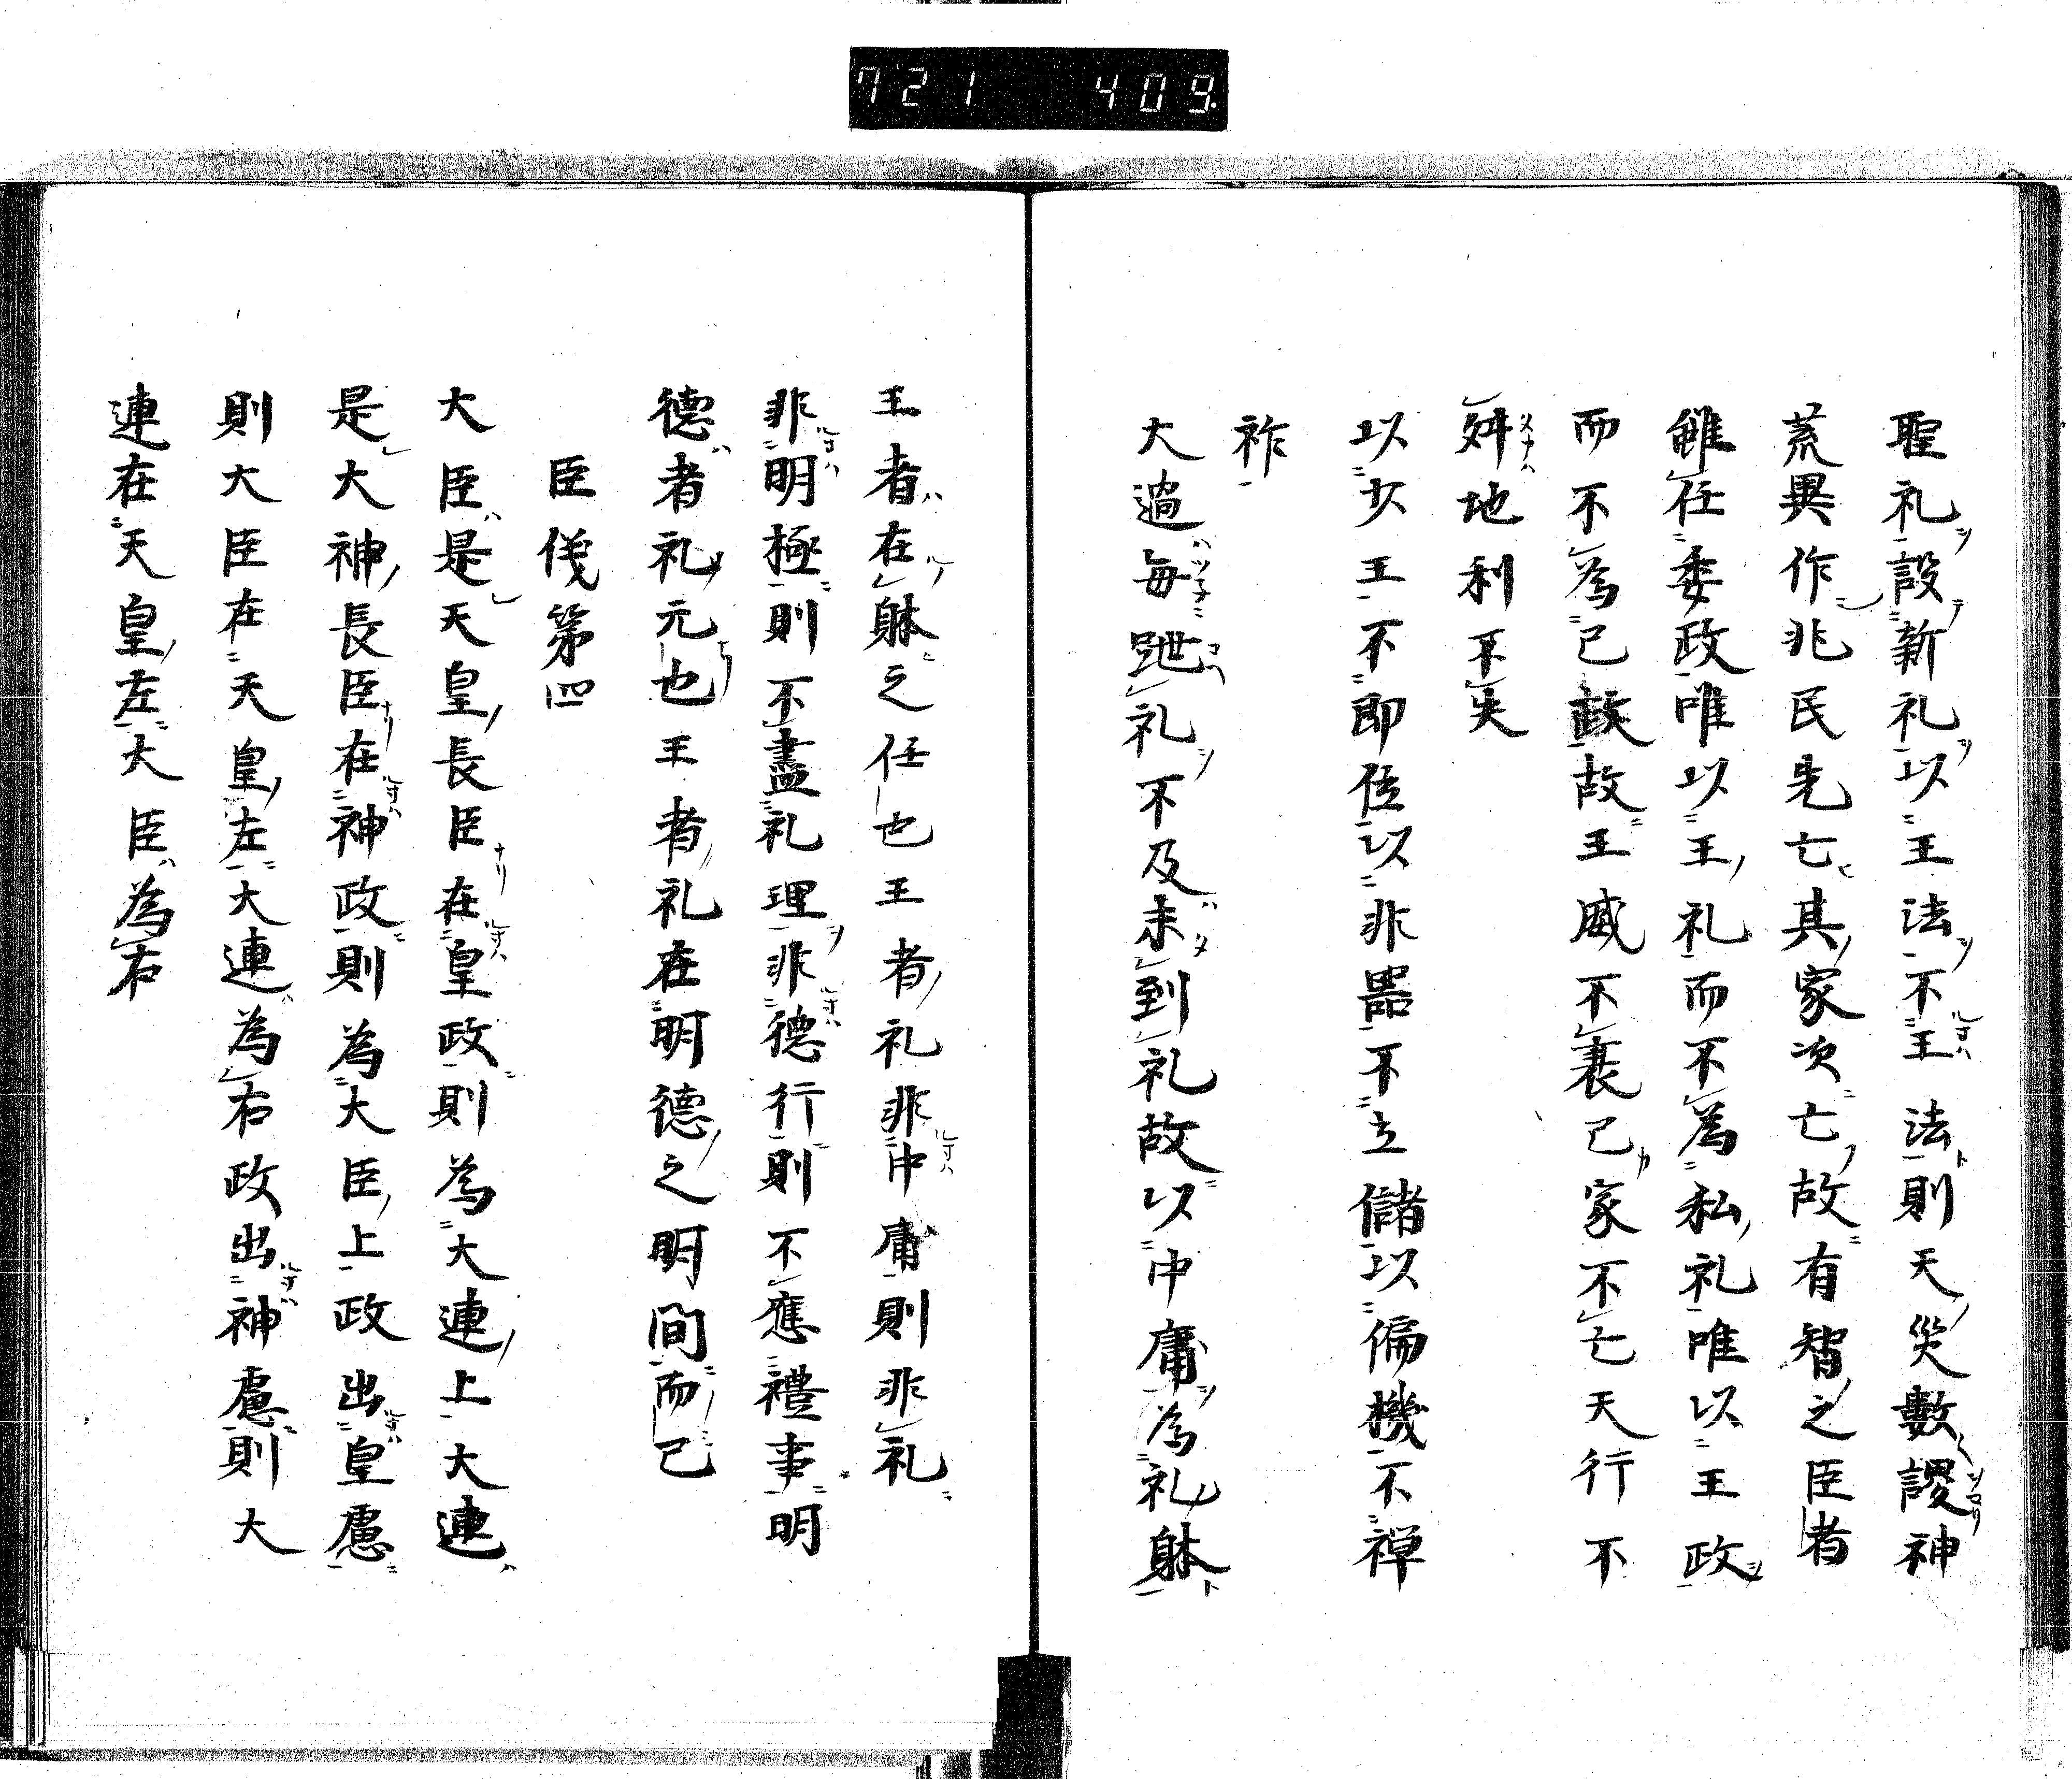 721 409.
聖礼設新礼以王法不王法則天災數謖神
荒異作兆民先亡其家次亡故有智之臣者
雖任委政唯以王礼而不為私礼唯以王政
而不為己政故王威不衰己家不亡天行不
舛地利不失
以少王不即位以非器不立儲以偏機不禅
祚
大過毎跇礼不及未到礼故以中庸為礼躰
王者在躰之任也王者礼非中庸則非礼
非明極則不盡礼理非德行則不應禮事明
德者礼元也王者礼在明德之明間而已
臣伎第四
大臣是天皇長臣在皇政則為大連上大連
是大神長臣在神政則為大臣上政出皇慮
則大臣在天皇左大連為右政出神慮則大
連在天皇左大臣為右